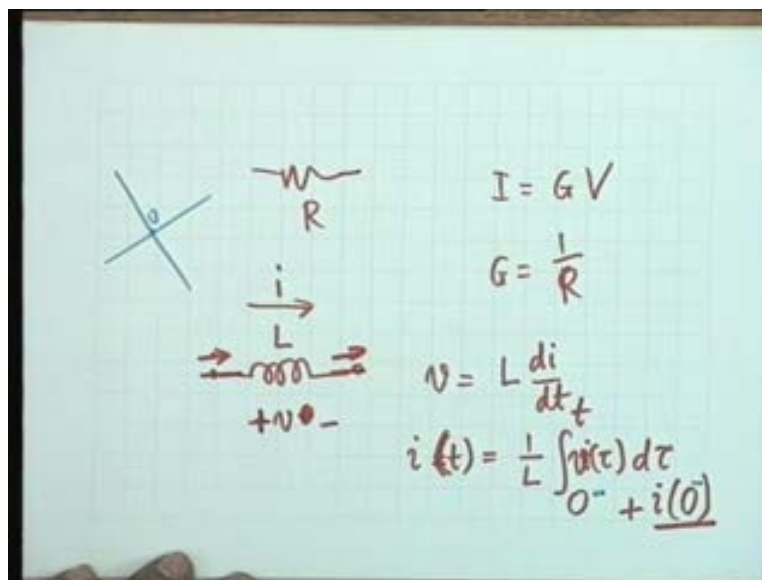 0
R
I = G V
G = 1/R
i
L
+ v -
v = L di/dt
i(t) = 1/L ∫_{0⁻}^{t} v(τ) dτ
+ i(0⁻)